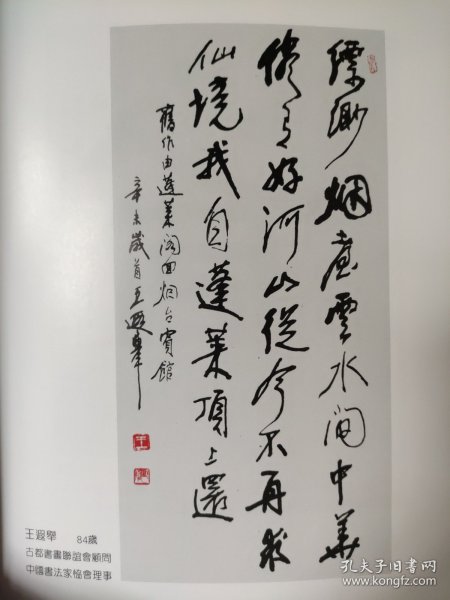 縹緲烟臺雲水間中華
儘有好河山從今不再求
仙境我自蓬萊頂上還
舊作由蓬萊閣回烟台賓館
辛未歲首王遐舉
王遐舉 84歲
古都書畫聯誼會顧問
中國書法家協會理事
孔夫子旧书网